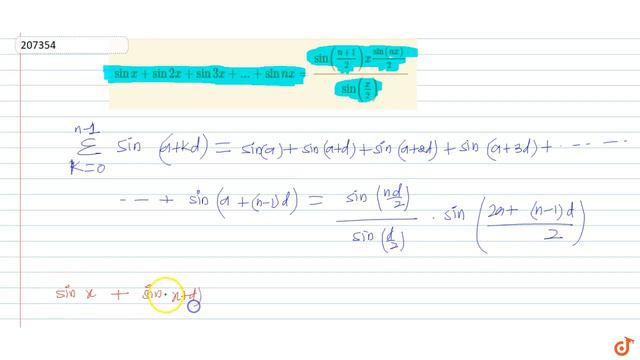 207354
sin x + sin 2x + sin 3x + ... + sin nx = sin((n+1)/2)x sin(nx)/2 / sin(x/2)
n-1 ∑ K=0 sin (a+Kd) = sin(a) + sin(a+d) + sin(a+2d) + sin(a+3d) + ... ...
... + sin(a+(n-1)d) = sin(nd/2) / sin(d/2) . sin((2a+(n-1)d)/2)
sin x + sin. x+d)
doubtnut